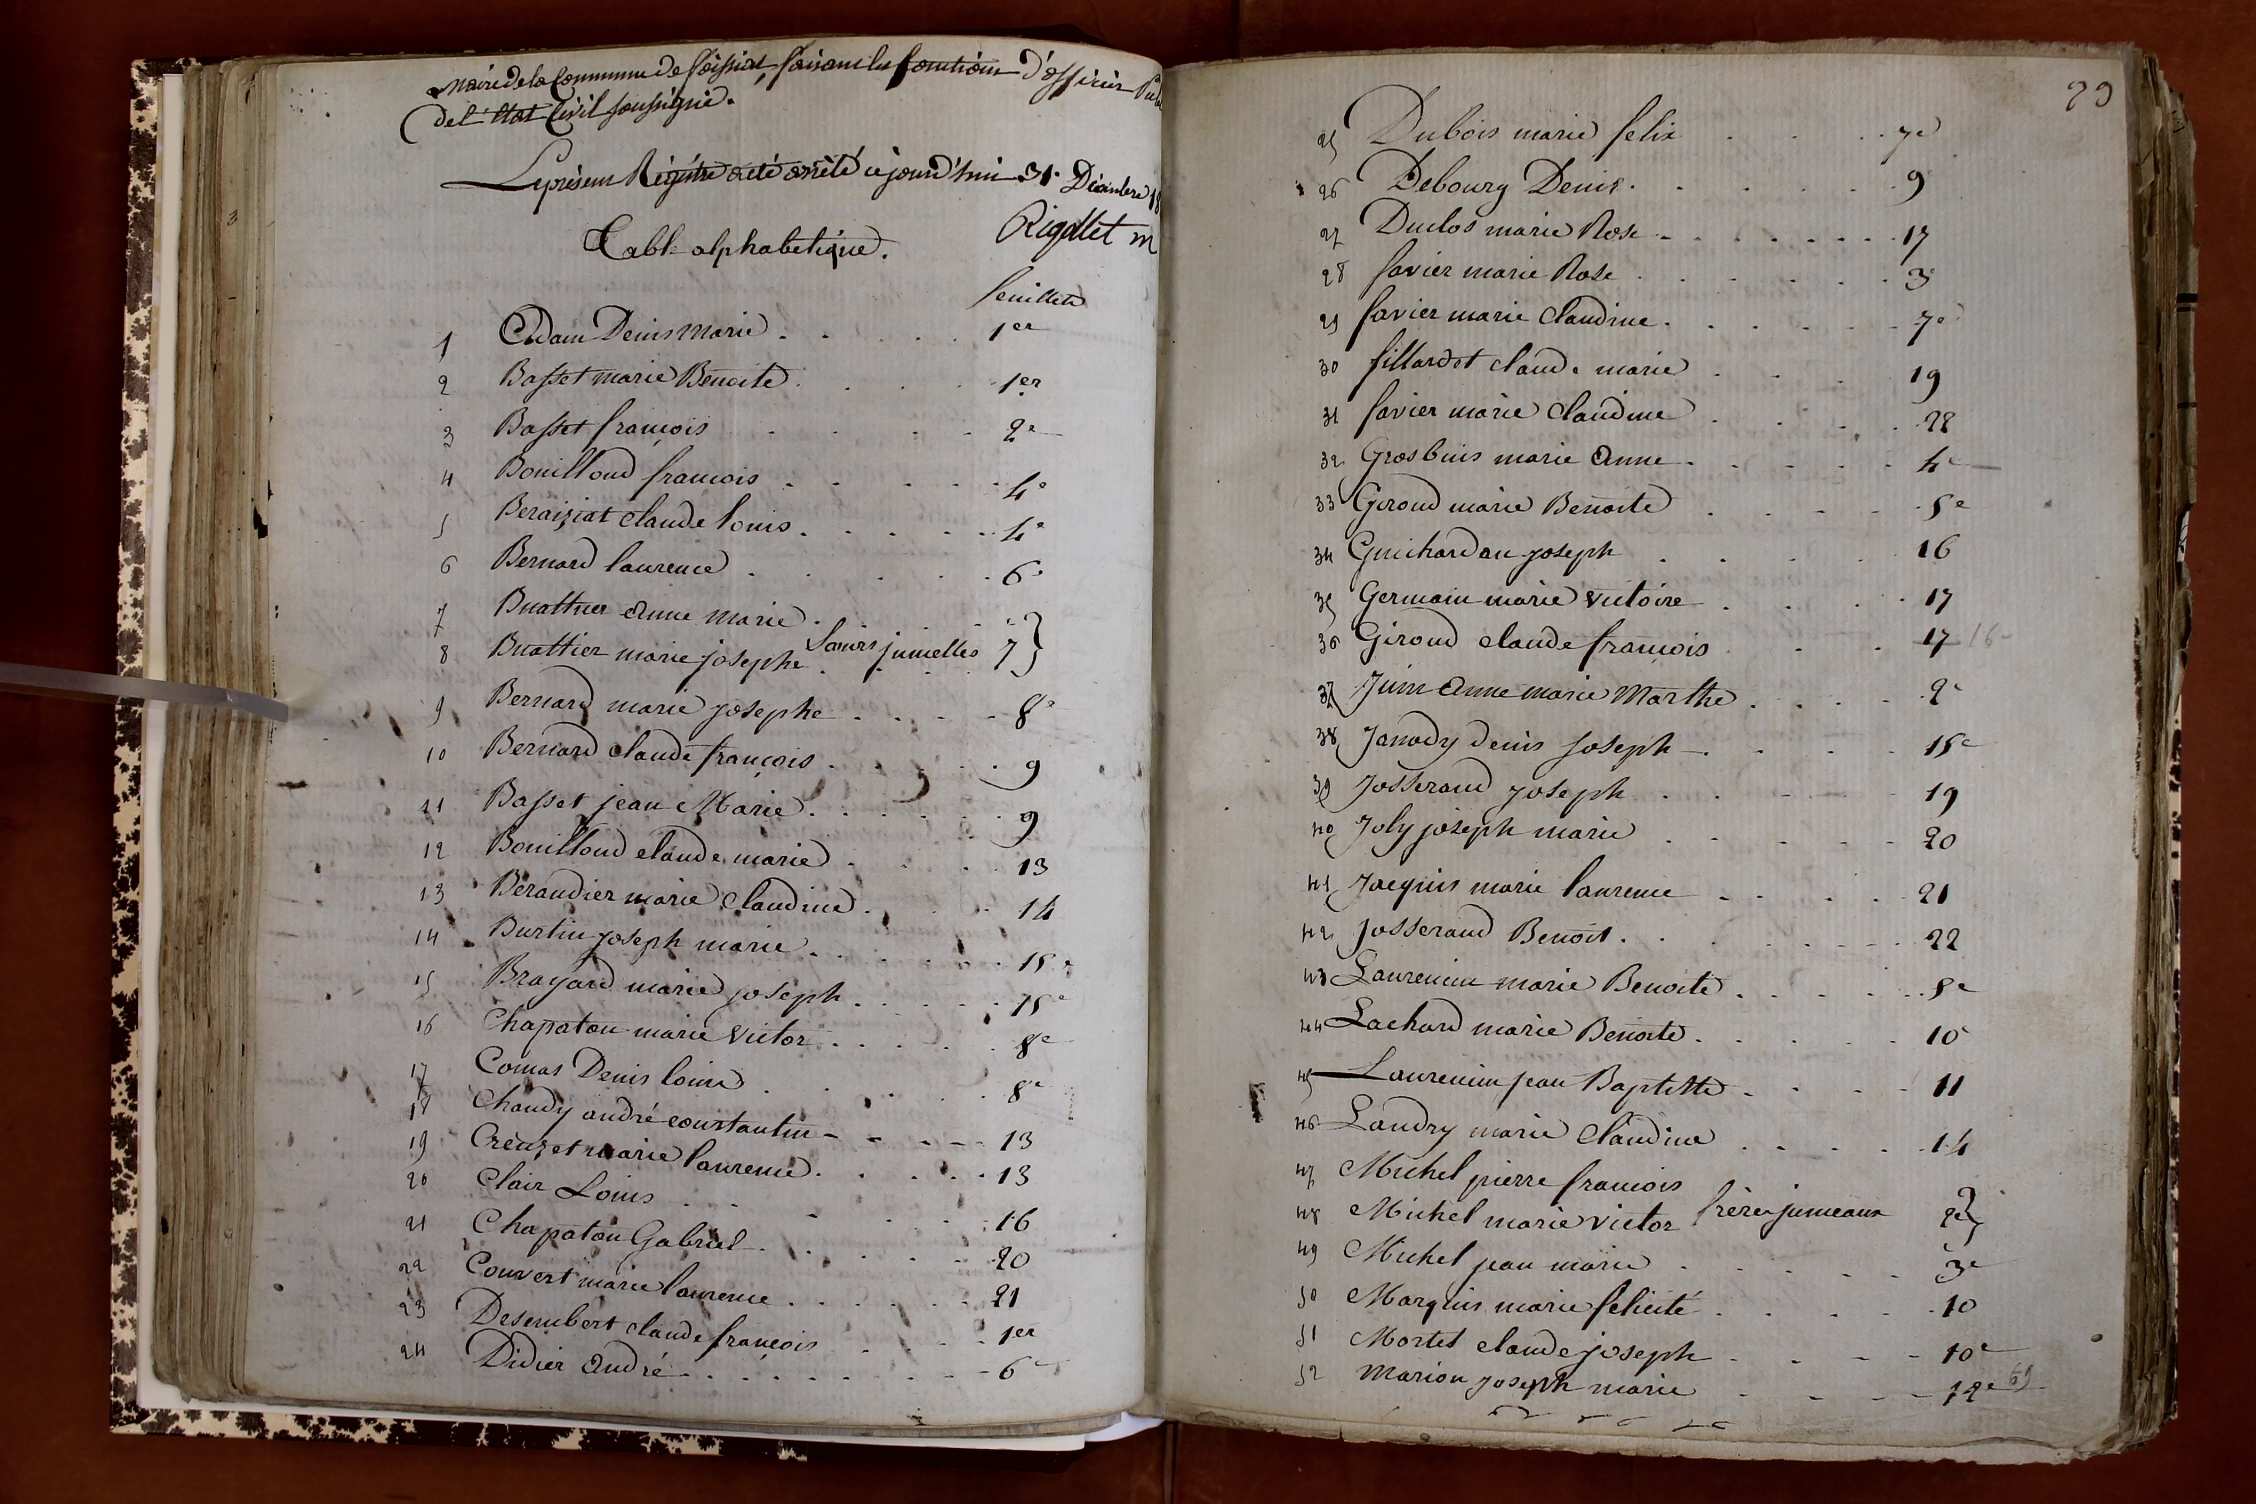 maire de la Commune de foissiat, faisant les fonctions d'officier
de l'état Civil soussigné.
Le présent Régistre a été arrêté ce jourd'hui 31 Décembre 18
Rigollet m
Table alphabetique.
feuillets
1 Adam Denis Marie 1er
2 Basset marie Benoite 1er
3 Basset francois 2e
4 Bouilloud francois 4e
5 Beraiziat claude louis 4e
6 Bernard laurence 6e
7 Buattier anne marie
8 Buattier marie josephe Sœurs jumelles 7
9 Bernard marie josephe 8e
10 Bernard claude françois 9
11 Basset jean Marie 9
12 Bouilloud claude marie 13
13 Beraudier marie claudine 14
14 Burtin joseph marie 15e
15 Brayard marie joseph 15e
16 Chapatou marie victor 8e
17 Comas Denis louis 8e
18 Chaudy andré constantin 13
19 Creuzet marie laurence 13
20 Clair Louis 16
21 Chapatou Gabriel 20
22 Couvert marie laurence 21
23 Desembert claude françois 1er
24 Didier andré 6e
23
25 Dubois marie felix 7e
26 Debourg Denis 9
27 Duclos marie Rose 17
28 favier marie Rose 3e
29 favier marie claudine 7e
30 fillardet claude marie 19
31 favier marie claudine 22
32 Grosbuis marie anne 4e
33 Giroud marie Benoite 5e
34 Guichardan joseph 16
35 Germain marie victoire 17
36 Giroud claude francois 17 16
37 Juin anne marie Marthe 2e
38 Janody denis joseph 15e
39 Josserand joseph 19
40 Joly joseph marie 20
41 Jacquis marie laurence 21
42 Josserand Benoit 22
43 Laurencin marie Benoite 5e
44 Lachard marie Benoite 10
45 Laurencin jean Baptiste 11
46 Landry marie claudine 14
47 Michel pierre francois
48 Michel marie victor frères jumeaux 2e
49 Michel jean marie 3e
50 Marquis marie felicité 10
51 Mortel claude joseph 10e
52 Marion joseph marie 12e